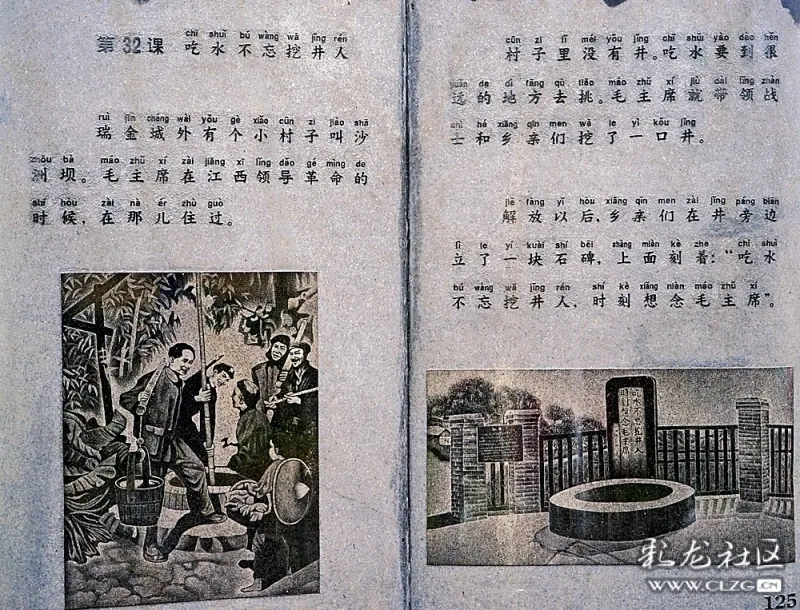 chī shuǐ bú wàng wā jǐng rén
第32课 吃水不忘挖井人
ruì jīn chéng wài yǒu gè xiǎo cūn zi jiào shā
瑞金城外有个小村子叫沙
zhōu bà máo zhǔ xí zài jiāng xī lǐng dǎo gé mìng de
洲坝。毛主席在江西领导革命的
shí hòu zài nà ér zhù guò
时候,在那儿住过。
cūn zi lǐ méi yǒu jǐng chī shuǐ yào dào hěn
村子里没有井。吃水要到很
yuǎn de dì fāng qù tiāo máo zhǔ xí jiù dài lǐng zhàn
远的地方去挑。毛主席就带领战
shì hé xiāng qīn men wā le yì kǒu jǐng
士和乡亲们挖了一口井。
jiě fàng yǐ hòu xiāng qīn men zài jǐng páng biān
解放以后,乡亲们在井旁边
lì le yí kuài shí bēi shàng miàn kè zhe chī shuǐ
立了一块石碑,上面刻着:“吃水
bú wàng wā jǐng rén shí kè xiǎng niàn máo zhǔ xí
不忘挖井人,时刻想念毛主席”。
吃水不忘挖井人
时刻想念毛主席
彩龙社区
WWW.CLZG.CN
125